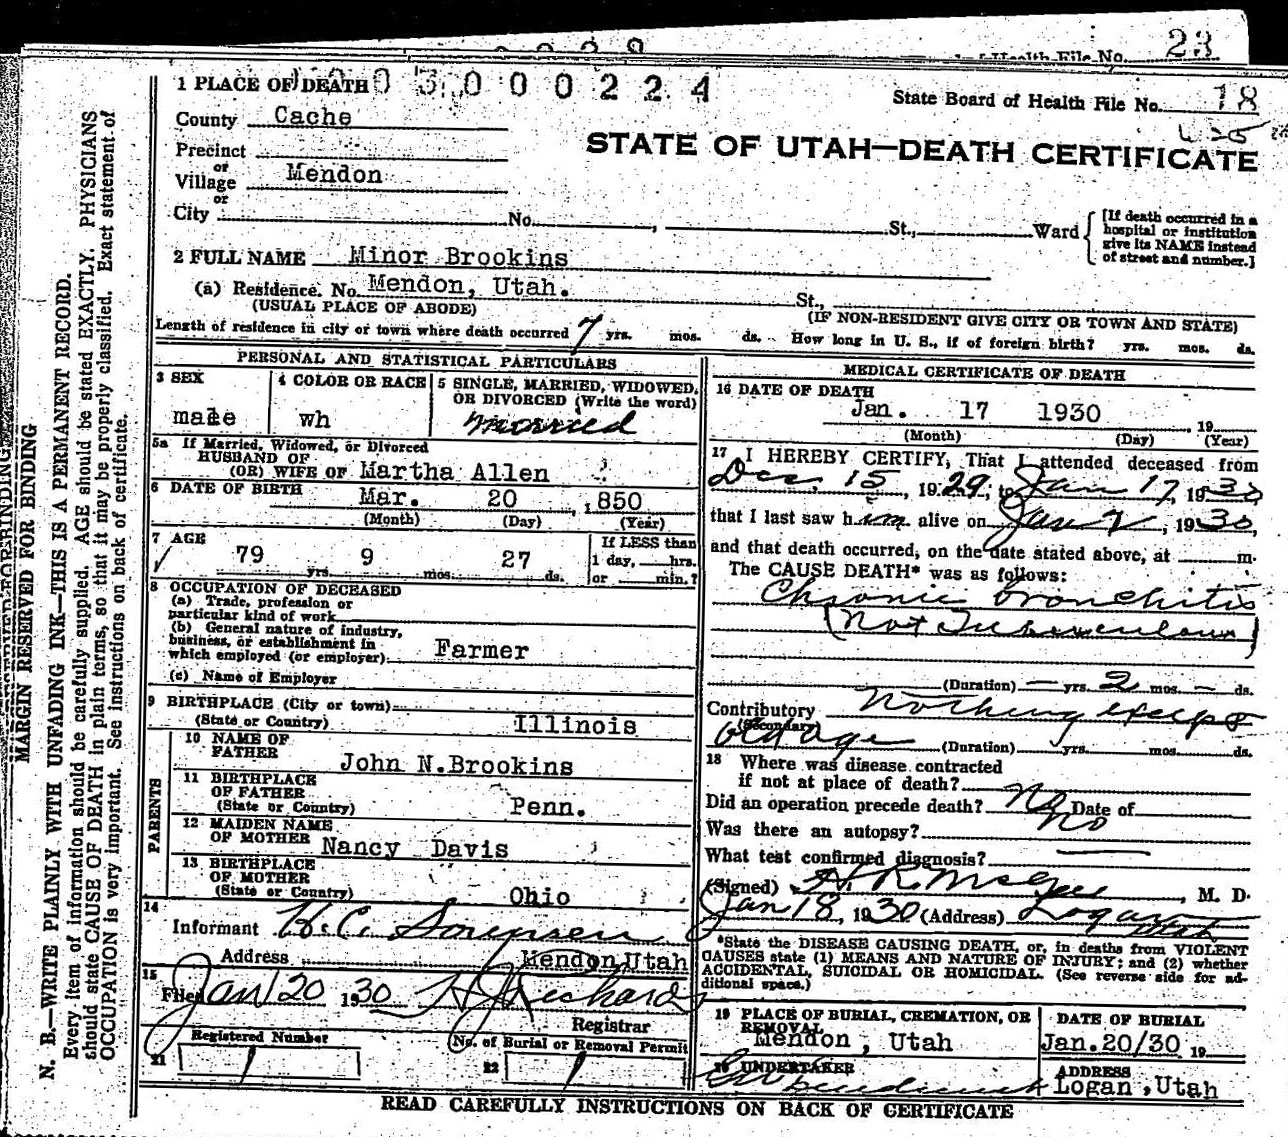 23
1 PLACE OF DEATH 03000224
State Board of Health File No. 18
County Cache
STATE OF UTAH—DEATH CERTIFICATE
Precinct
or
Village Mendon
or
City No. , St., Ward
[If death occurred in a
hospital or institution
give its NAME instead
of street and number.]
2 FULL NAME Minor Brookins
(a) Residence. No. Mendon, Utah. St.,
(USUAL PLACE OF ABODE) (IF NON-RESIDENT GIVE CITY OR TOWN AND STATE)
Length of residence in city or town where death occurred 7 yrs. mos. ds. How long in U. S., if of foreign birth? yrs. mos. ds.
PERSONAL AND STATISTICAL PARTICULARS
3 SEX 4 COLOR OR RACE 5 SINGLE, MARRIED, WIDOWED,
OR DIVORCED (Write the word)
male wh married
5a If Married, Widowed, or Divorced
HUSBAND OF
(OR) WIFE OF Martha Allen
6 DATE OF BIRTH Mar. 20 , 1850
(Month) (Day) (Year)
7 AGE If LESS than
79 9 27 1 day, hrs.
yrs. mos. ds. or min.?
8 OCCUPATION OF DECEASED
(a) Trade, profession or
particular kind of work
(b) General nature of industry,
business, or establishment in
which employed (or employer) Farmer
(c) Name of Employer
9 BIRTHPLACE (City or town)
(State or Country) Illinois
PARENTS
10 NAME OF
FATHER John N.Brookins
11 BIRTHPLACE
OF FATHER
(State or Country) Penn.
12 MAIDEN NAME
OF MOTHER Nancy Davis
13 BIRTHPLACE
OF MOTHER
(State or Country) Ohio
14
Informant H.C. Sorensen
Address Mendon Utah
15
Filed Jan 20 1930 Richards
Registrar
Registered Number No. of Burial or Removal Permit
21 1 22 1
MEDICAL CERTIFICATE OF DEATH
16 DATE OF DEATH
Jan. 17 1930 , 19
(Month) (Day) (Year)
17 I HEREBY CERTIFY, That I attended deceased from
Dec, 15, 1929, to Jan 17, 1930
that I last saw him alive on Jan 2, 1930,
and that death occurred, on the date stated above, at m.
The CAUSE DEATH* was as follows:
Chronic bronchitis
(Not Tuberculous)
(Duration) — yrs. 2 mos. — ds.
Contributory Nothing except
(Secondary)
old age (Duration) yrs. mos. ds.
18 Where was disease contracted
if not at place of death?
Did an operation precede death? No Date of
Was there an autopsy? no
What test confirmed diagnosis?
(Signed) H. R. McGee , M. D.
Jan 18, 1930 (Address) Logan Utah
*State the DISEASE CAUSING DEATH, or, in deaths from VIOLENT
CAUSES state (1) MEANS AND NATURE OF INJURY; and (2) whether
ACCIDENTAL, SUICIDAL OR HOMICIDAL. (See reverse side for ad-
ditional space.)
19 PLACE OF BURIAL, CREMATION, OR
REMOVAL
Mendon, Utah
DATE OF BURIAL
Jan.20/30 19
20 UNDERTAKER
ADDRESS
Logan, Utah
READ CAREFULLY INSTRUCTIONS ON BACK OF CERTIFICATE
MARGIN RESERVED FOR BINDING
N. B.—WRITE PLAINLY WITH UNFADING INK—THIS IS A PERMANENT RECORD.
Every item of information should be carefully supplied. AGE should be stated EXACTLY. PHYSICIANS
should state CAUSE OF DEATH in plain terms, so that it may be properly classified. Exact statement of
OCCUPATION is very important. See instructions on back of certificate.